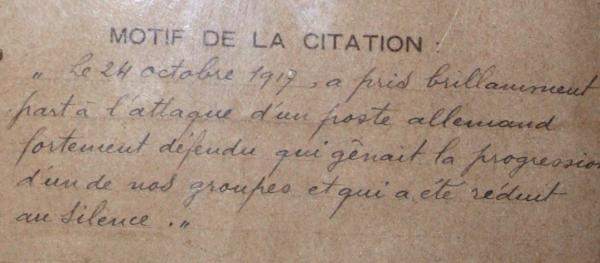 MOTIF DE LA CITATION :
„ Le 24 octobre 1917, a pris brillamment
part à l'attaque d'un poste allemand
fortement défendu qui gênait la progression
d'un de nos groupes et qui a été réduit
au silence. „